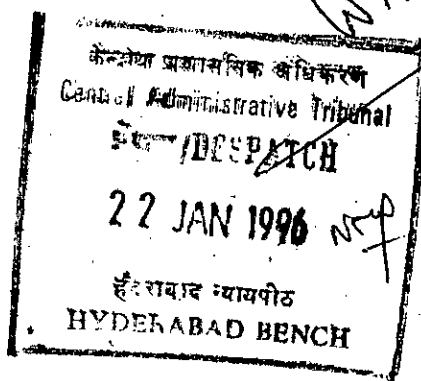 केन्द्रीय प्रशासनिक अधिकरण
Central Administrative Tribunal
/DESPATCH
22 JAN 1996
हैदराबाद न्यायपीठ
HYDERABAD BENCH